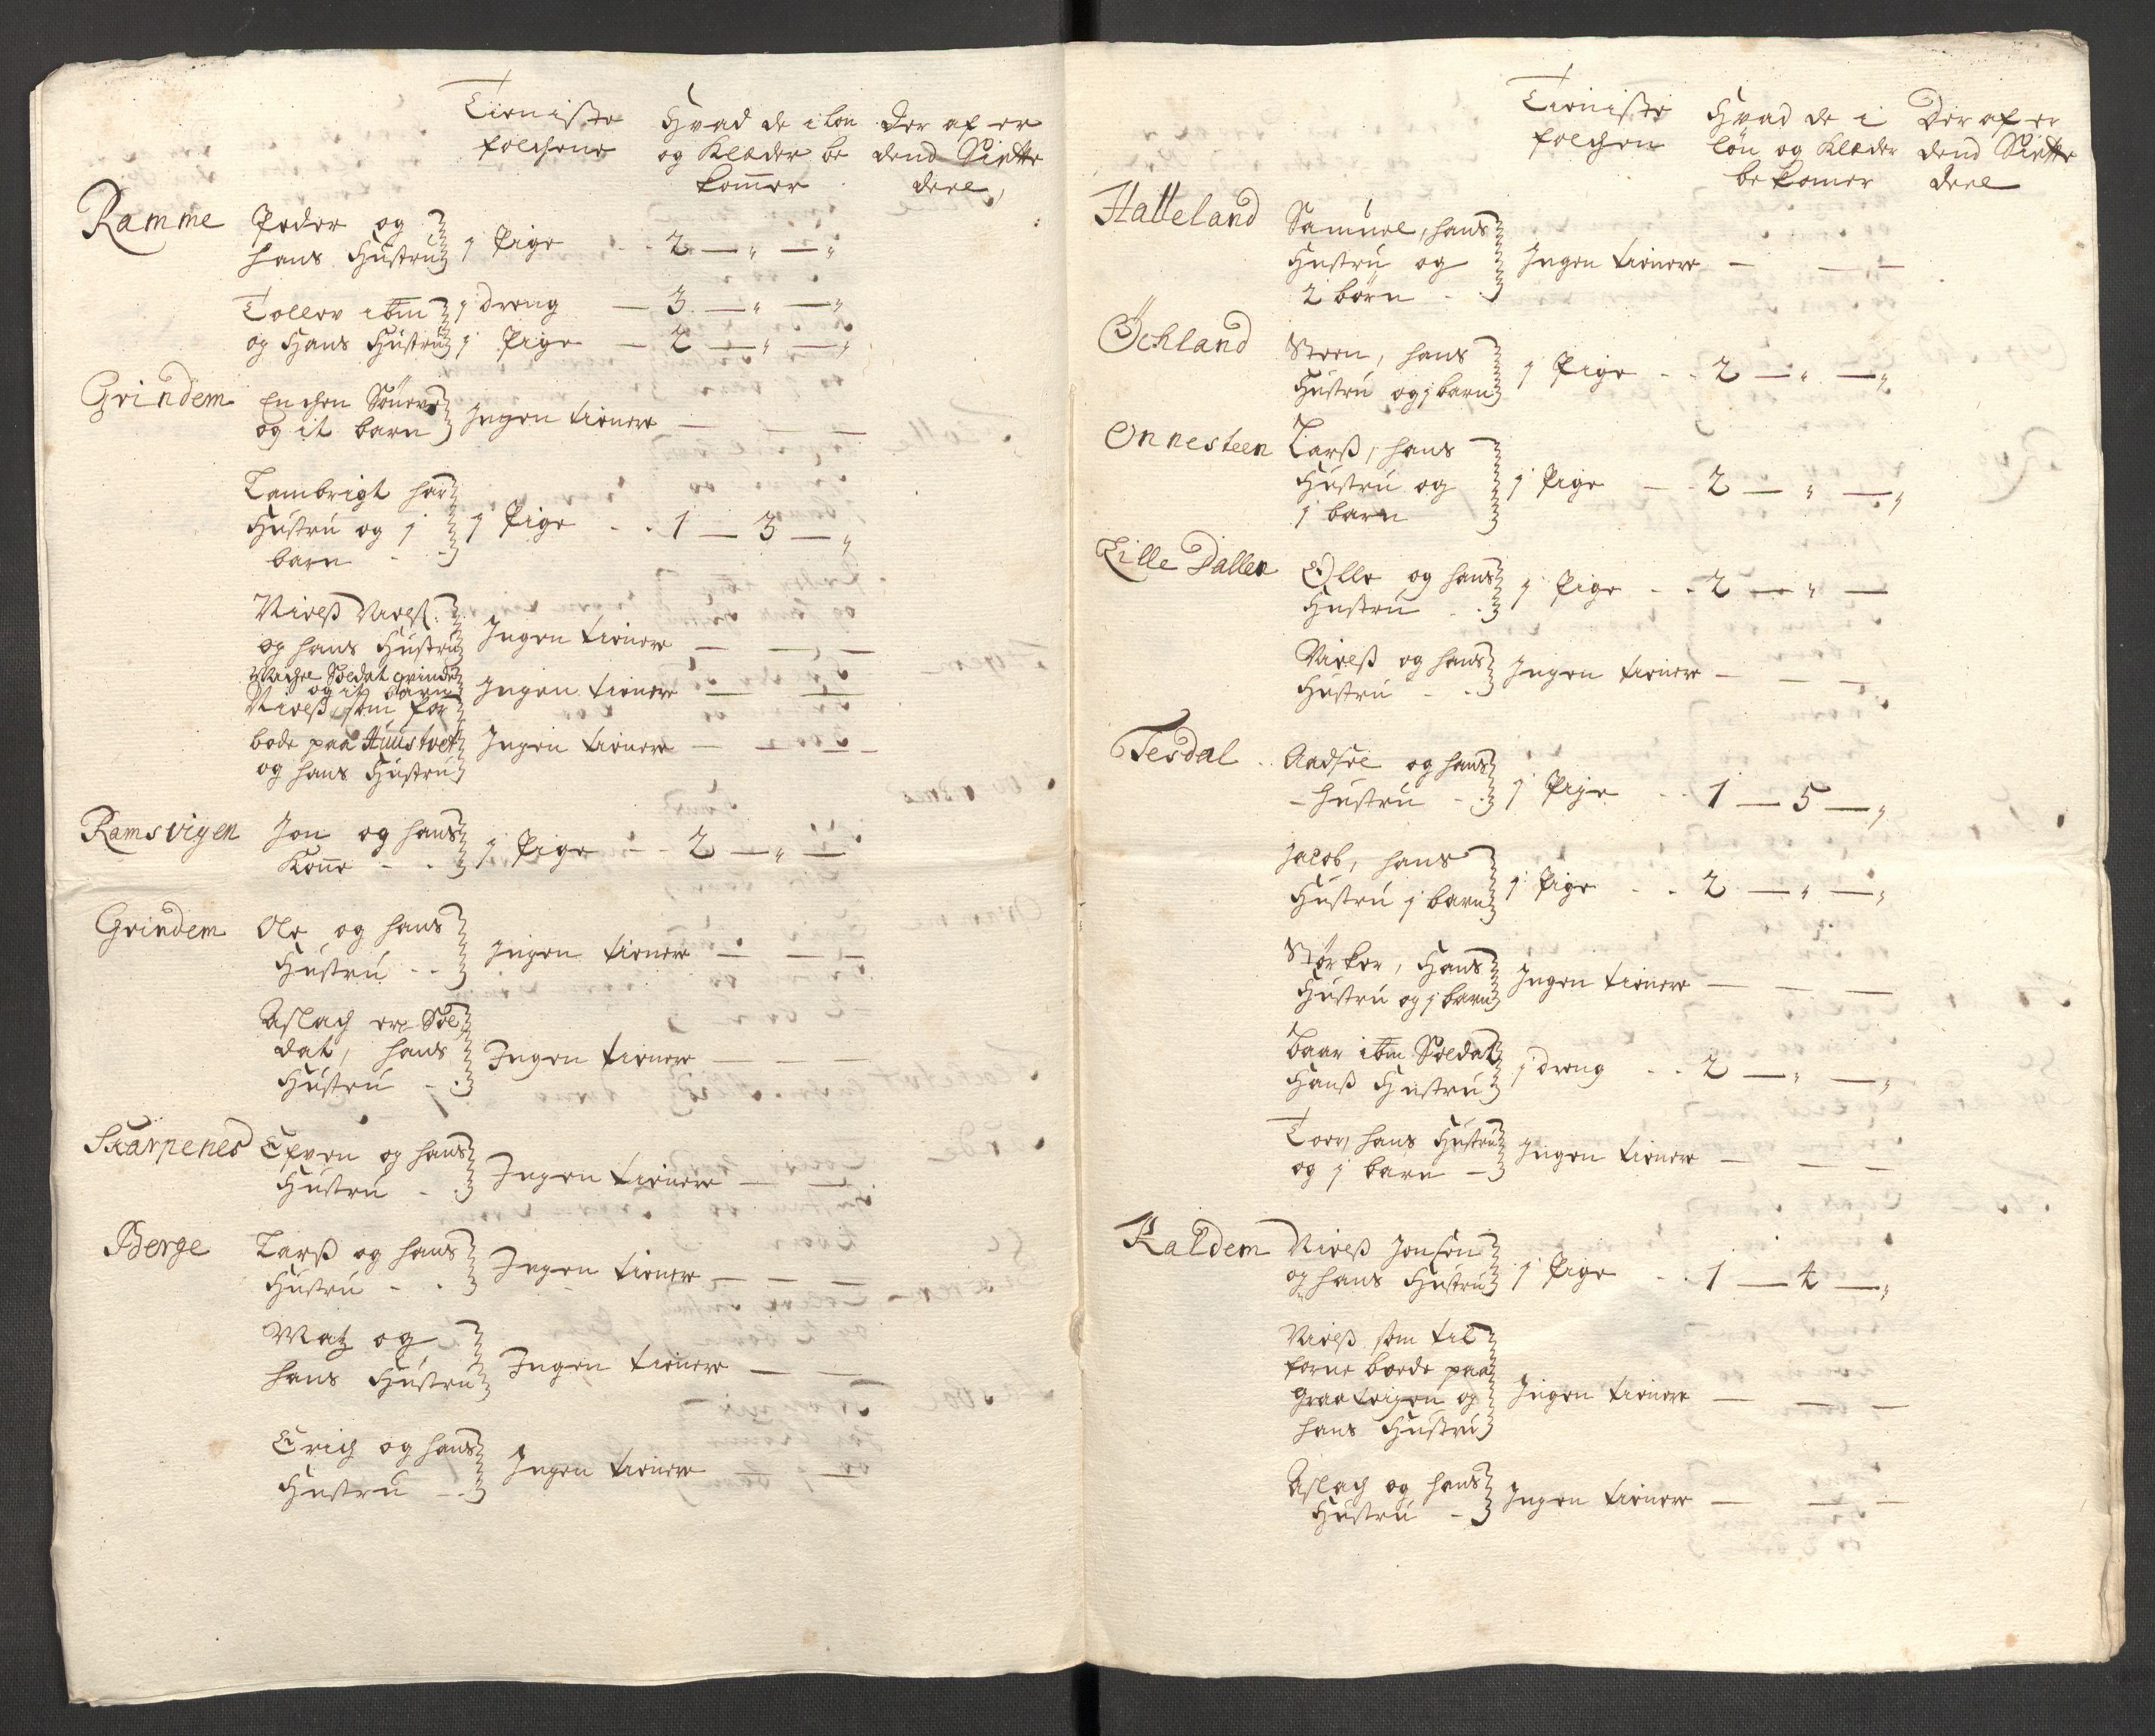 Tieniste folchene
Hvad de i lön og Klæder be kom̄er
Der af er dend Siette deel,
Ramme Peder og hans Hustru 1 Pige - - 2 — „ — „
Tollev ibm og Hans Hustru 1 dreng — 3 — „ — „
1 Pige — 2 — „ — „
Grindem Enchen Sönneve og it barn Ingen tienere — — —
Lambrigt hans Hustru og 1 barn - - 1 Pige - - 1 — 3 — „
Nielß Nielß: og hans Hustru Ingen tienere — — —
Soldat qvinde og it barn Ingen tienere — — —
Nielß, som for bode paa Huustvet og hans Hustru Ingen tienere — — —
Ramsvigen Jon og hans Kone - - 1 Pige - - 2 — „ —
Grindem Ole og hans Hustru - - Ingen tienere — — —
Aslach er Sol dat, hans Hustru - - Ingen tienere — — —
Skarpenes Efven og hans Hustru - - Ingen tienere — —
Berge Larß og hans Hustru - - Ingen tienere — — —
Matz og hans Hustru Ingen tienere — —
Erich og hans Hustru - - Ingen tienere
Tieniste folchen
Hvad de i lön og Klæder be komer
Der af er dend Siette deel
Hatteland Samuel, hans Hustru og 2 börn - - Ingen tienere — — —
Öchland Steen, hans Hustru og 1 barn 1 Pige - - 2 — „ — „
Onnesteen Larß, hans Hustru og 1 barn 1 Pige — - 2 — „ — „
Lille Dallen Olle og hans Hustru - - 1 Pige - - 2 — „ —
Nielß og hans Hustru - - Ingen tienere — — —
Tesdal Aadsel og hans Hustru - - 1 Pige - - 1 — 5 — „
Jacob, hans Hustru 1 barn 1 Pige - - 2 — „ — „
Störker, Hans Hustru og 1 barn Ingen tienere — — —
Baar ibm Soldat Hanß Hustru 1 dreng - - 2 — „ — „
Tore, hans Hustru og 1 barn — Ingen tienere — — —
Kaldem Nielß Jonsön og hans Hustru 1 Pige - - 1 — 4 — „
Nielß som til forne boede paa og hans Hustru Ingen tienere — — —
Aslach og hans Hustru - - Ingen tienere — — —